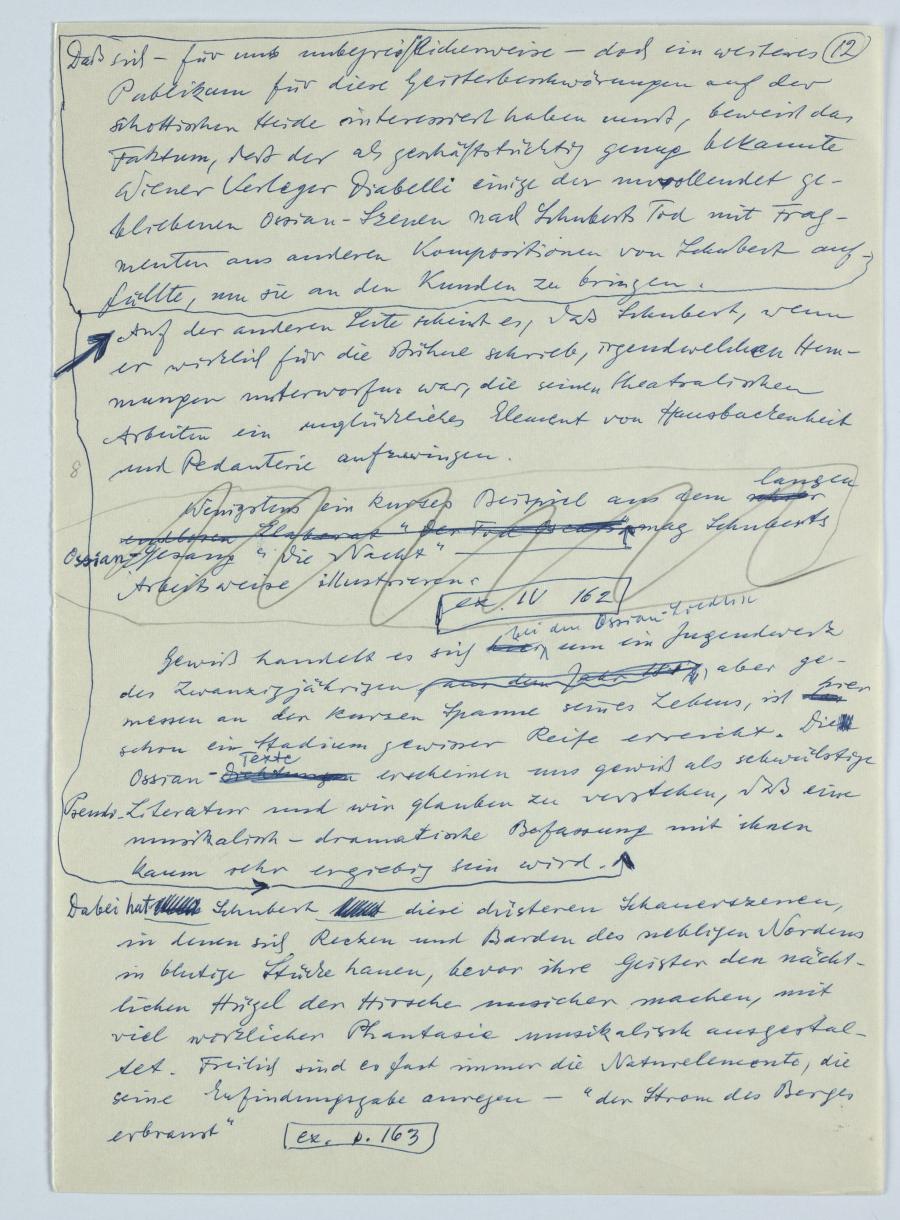 12
Daß sich – für uns unbegreiflicherweise – doch ein weiteres
Publikum für diese Geisterbeschwörungen auf der
schottischen Heide interessiert haben muß, beweist das
Faktum, daß der als geschäftstüchtig genug bekannte
Wiener Verleger Diabelli einige der unvollendet ge-
bliebenen Ossian-Szenen nach Schuberts Tod mit Frag-
menten aus anderen Kompositionen von Schubert auf-
füllte, um sie an den Kunden zu bringen.
Auf der anderen Seite scheint es, daß Schubert, wenn
er wirklich für die Bühne schrieb, irgendwelchen Hem-
mungen unterworfen war, die seinen theatralischen
Arbeiten ein unglückliches Element von Hausbackenheit
und Pedanterie aufzwingen.
8
langen
Wenigstens ein kurzes Beispiel aus dem
endlosen Elaborat "Der Tod Oscars" mag Schuberts
Ossian-Gesang "Die Nacht"
Arbeitsweise illustrieren:
ex. IV 162
bei den Ossian-Liedern
Gewiß handelt es sich hier um ein Jugendwerk
des Zwanzigjährigen (aus dem Jahr), aber ge-
hier
messen an der kurzen Spanne seines Lebens, ist
schon ein Stadium gewisser Reife erreicht. Die
Texte
Ossian-Dichtungen erscheinen uns gewiß als schwülstige
Pseudo-Literatur und wir glauben zu verstehen, daß eine
musikalisch-dramatische Befassung mit ihnen
kaum sehr ergiebig sein wird.
Dabei hat Schubert diese düsteren Schauerszenen,
in denen sich Recken und Barden des nebligen Nordens
in blutige Stücke hauen, bevor ihre Geister den nächt-
lichen Hügel der Hirsche unsicher machen, mit
viel wirklicher Phantasie musikalisch ausgestal-
tet. Freilich sind es fast immer die Naturelemente, die
seine Erfindungsgabe anregen – "der Strom des Berges
erbraust"
ex. p. 163